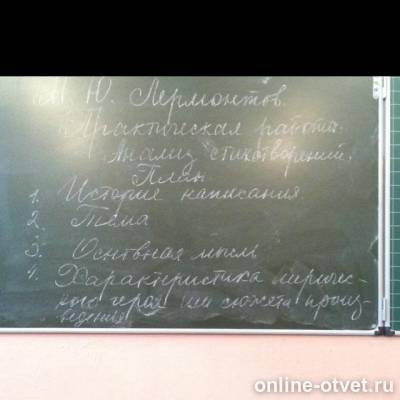 М. Ю. Лермонтов.
Практическая работа.
Анализ стихотворений.
План
1. История написания.
2. Тема
3. Основная мысль
4. Характеристика лиричес-
кого героя или сюжета произ-
ведения
online-otvet.ru